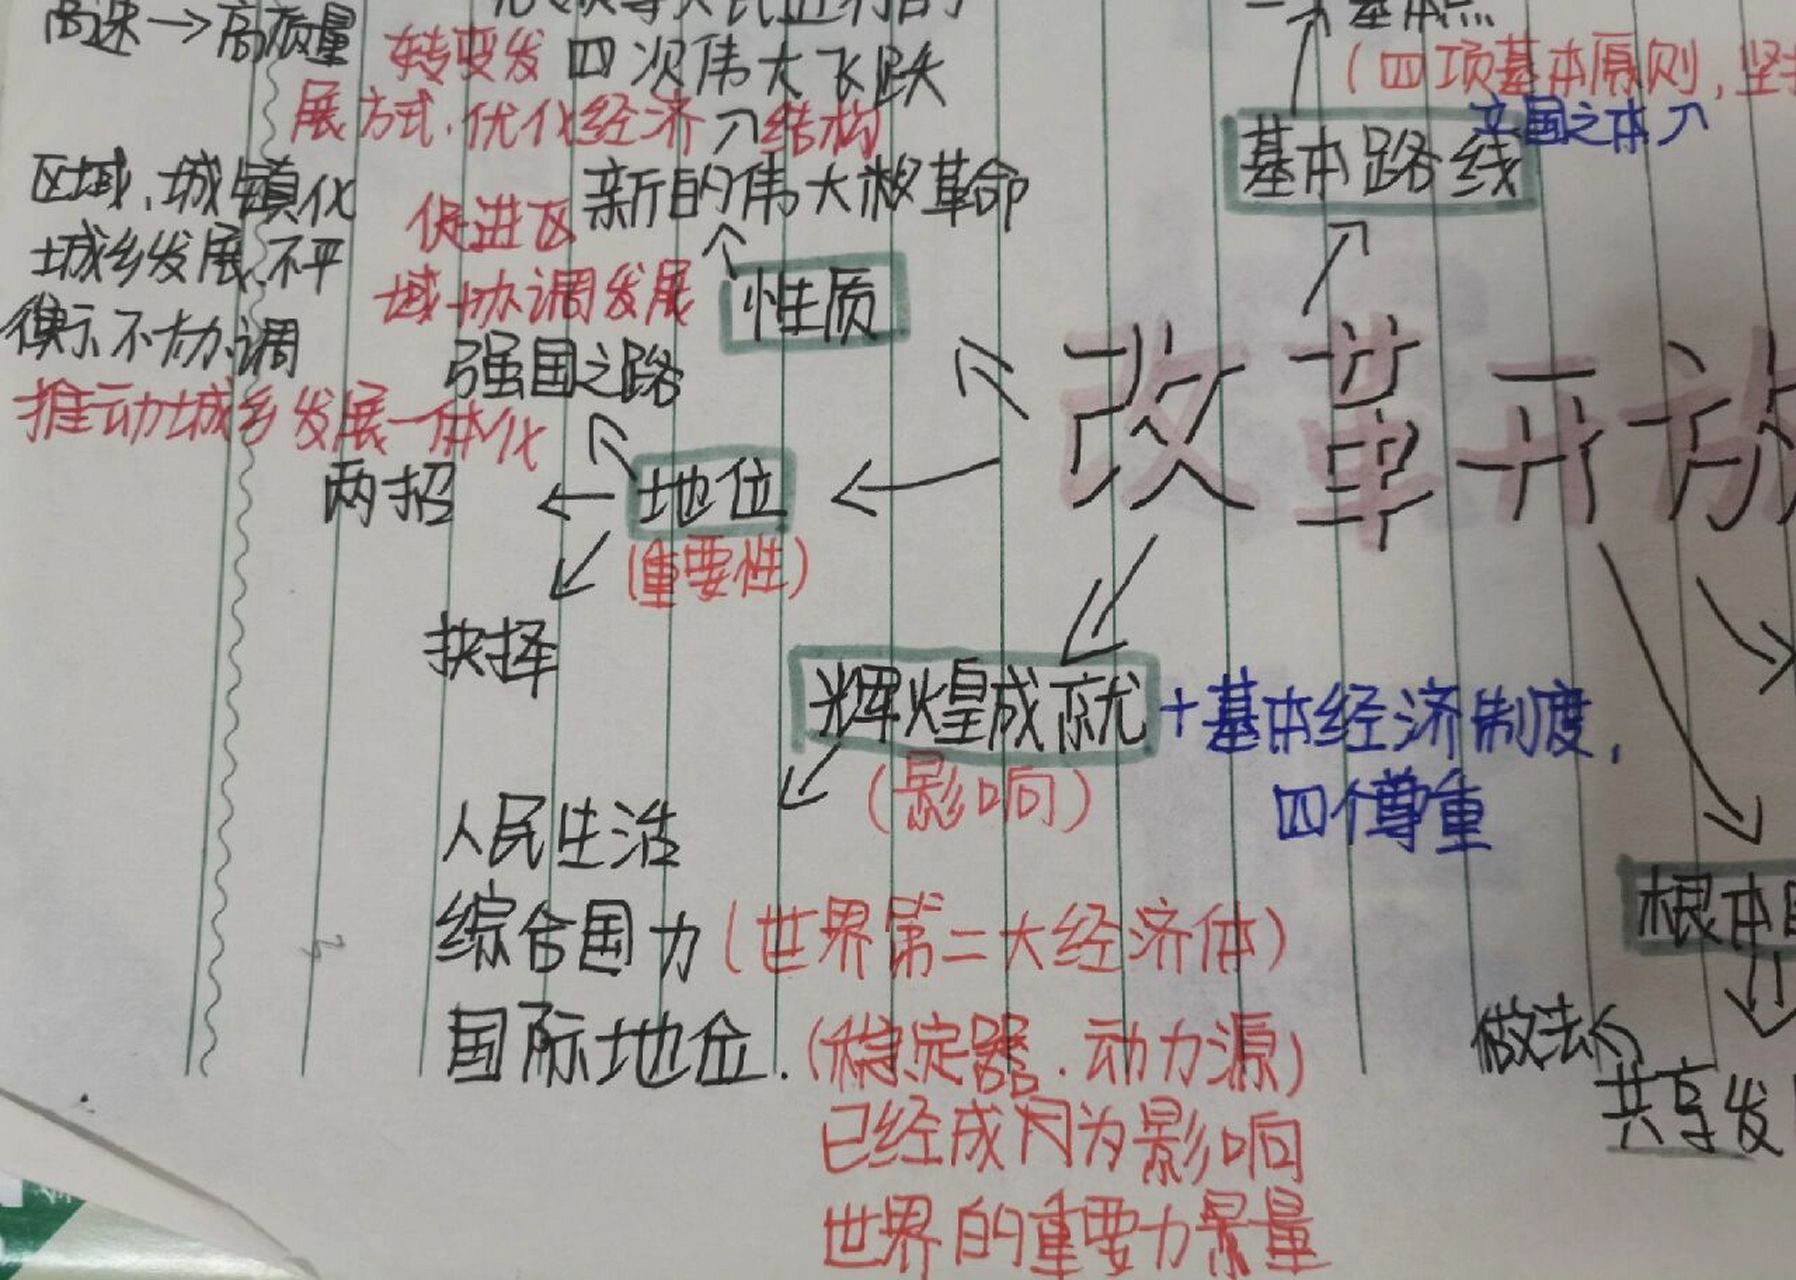 高速→高质量
转变发
四次伟大飞跃
展方式.优化经济结构
(四项基本原则,坚
立国之本
基本路线
区域.城镇化
新的伟大革命
促进区
城乡发展不平
域协调发展
性质
不协调
强国之路
推动城乡发展一体化
改革开放
两招
地位
(重要性)
抉择
辉煌成就+基本经济制度,
(影响)
四个尊重
人民生活
综合国力(世界第二大经济体)
根本
国际地位.(稳定器.动力源)
做法
共享发
已经成为影响
世界的重要力量